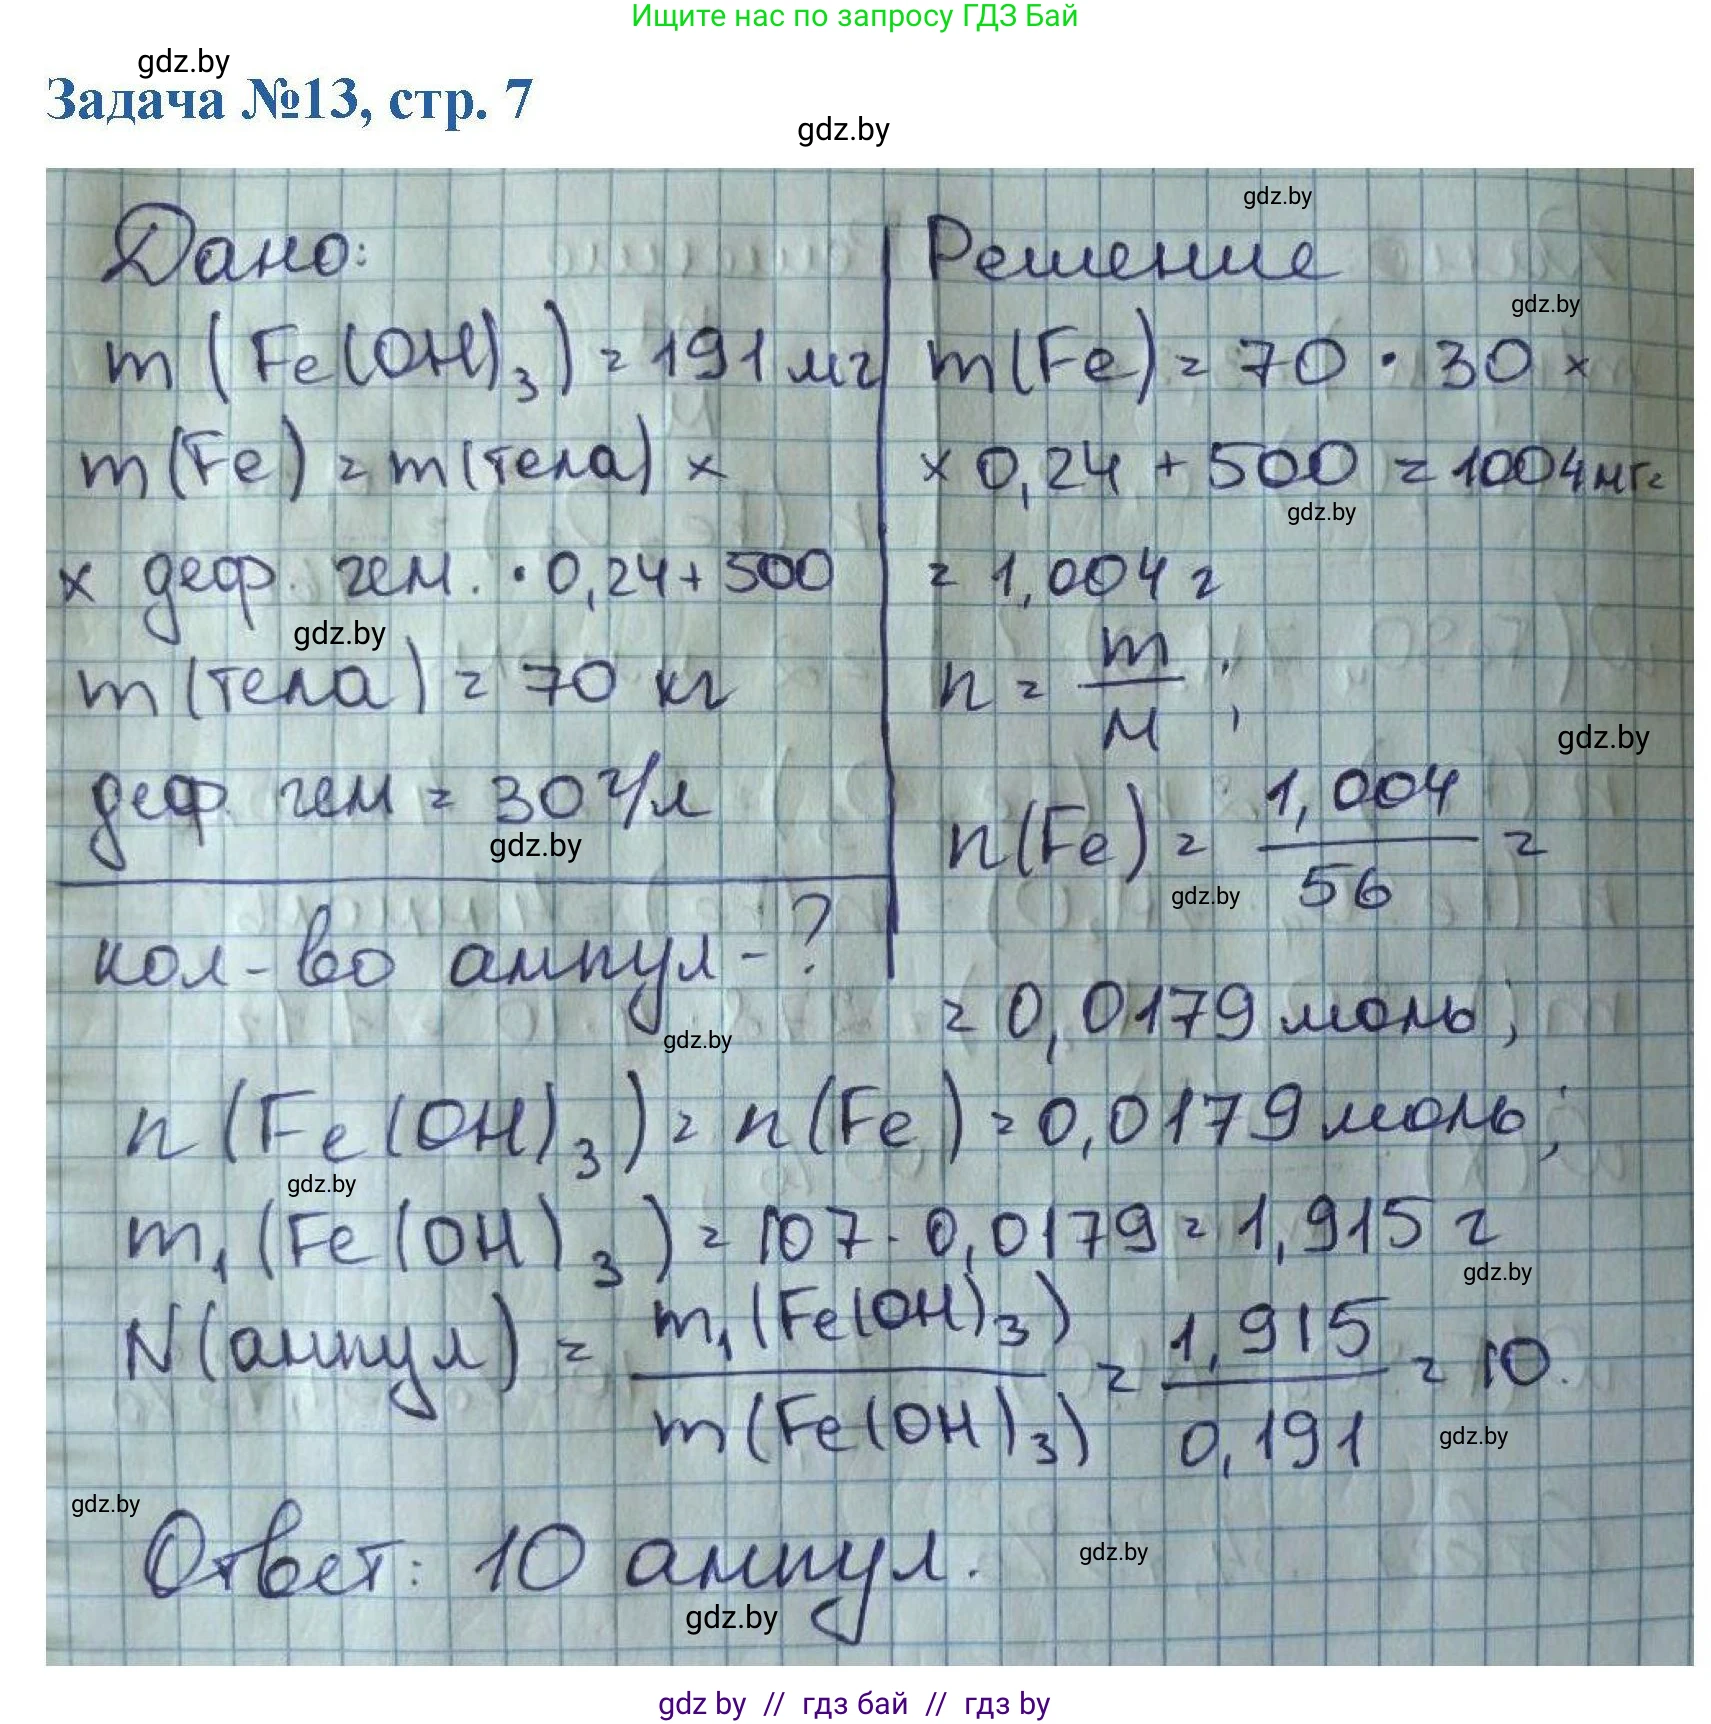 Ищите нас по запросу ГДЗ Бай
gdz.by
Задача №13, стр. 7
gdz.by
Дано:
m (Fe(OH)3) = 191 мг
m(Fe) = m(тела) ×
× деф. гем. · 0,24 + 500
gdz.by
m(тела) = 70 кг
деф. гем = 30 г/л
gdz.by
кол-во ампул - ?
gdz.by
gdz.by
Решение
gdz.by
m(Fe) = 70 · 30 ×
× 0,24 + 500 = 1004 мг =
gdz.by
= 1,004 г
n = m/M ;
gdz.by
n(Fe) = 1,004/56 =
gdz.by
= 0,0179 моль;
n (Fe(OH)3) = n (Fe) = 0,0179 моль;
gdz.by
m1 (Fe(OH)3) = 107 · 0,0179 = 1,915 г
gdz.by
N(ампул) = m1(Fe(OH)3)/m(Fe(OH)3) = 1,915/0,191 = 10.
gdz.by
gdz.by
Ответ: 10 ампул.
gdz.by
gdz.by
gdz by // гдз бай // гдз by